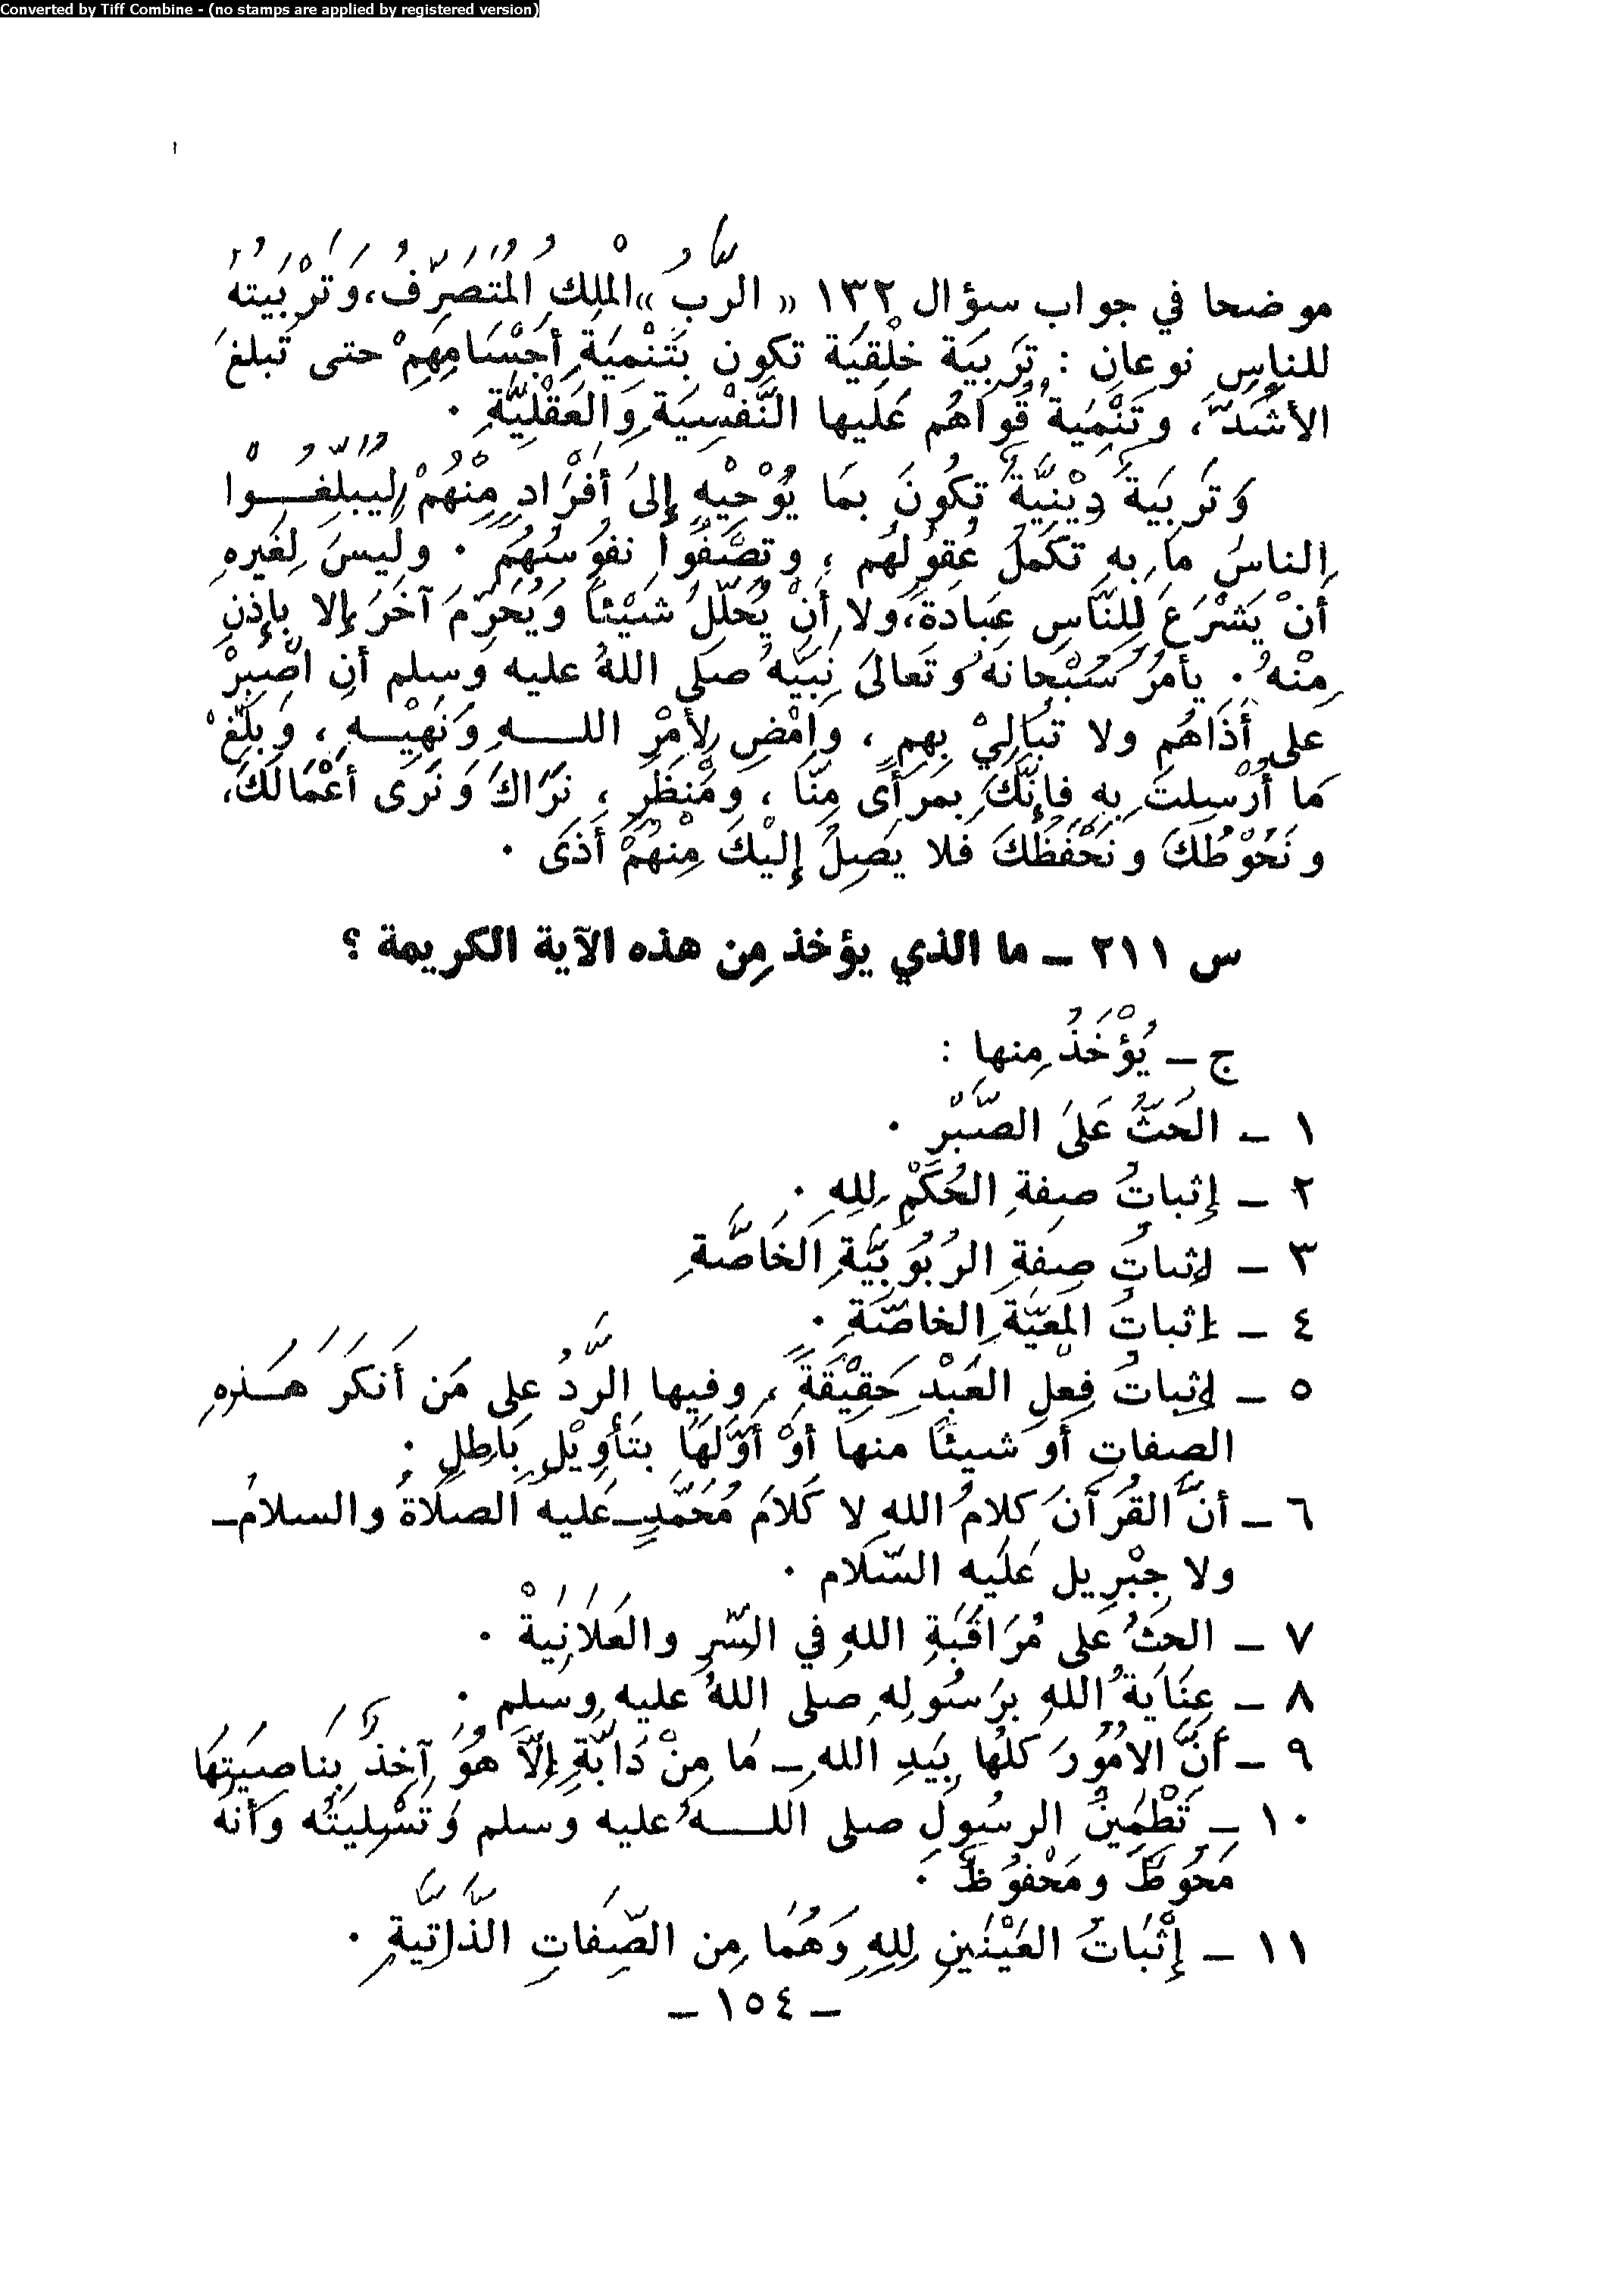 Converted by Tiff Combine - (no stamps are applied by registered version)
موضحا في جواب سؤال ١٣٢ « الرَّبُّ » الْمَلِكُ الْمُتَصَرِّفُ، وَتَرْبِيَتُهُ
للناسِ نوعانِ : تَرْبِيَة خَلْقِيَّة تكون بِتَنْمِيَةِ أَجْسَامِهِمْ حتى تَبلغَ
الأشُدَّ، وتَنْمِيَةُ قُوَاهُم عَلَيها النَّفْسِيَةِ وَالعَقْلِيَّةِ .
وَتَرْبِيَةٌ دِيْنِيَّةٌ تكُونَ بِمَا يُوْحِيْهِ إلىَ أفْرَادٍ مِّنْهُمْ لِيُبَلِّغُــوْا
الناسُ مَا بِه تَكْمَلُ عُقولُهُم ، وتصْفُوا نفوُسُهُم . ولَيسَ لِغَيرهِ
أنْ يَشْرَعَ لِلنَّاسِ عِبَادَةً، ولا أنْ يُحَلِّلَ شَيْئاً وَيُحَرِّمَ آخَرَ إلا بإذنٍ
مِنْهُ . يأمرُ سُبْحانَهُ وَتَعالىَ نَبِيَّهُ صلى اللهُ عليه وسلم أنِ اصْبِرْ
على أَذَاهُم ولا تُبَالِيْ بِهِم ، وامْضِ لِأمْرِ اللــهِ وَنَهْيِــهِ ، وَبَلِّغْ
مَا أُرْسِلتَ بِهِ فإنَّكَ بِمَرأىً مِنَّا ، ومَنْظَرٍ ، نَرَاكَ وَنَرَى أعْمَالَكَ،
ونَحُوْطُكَ ونَحْفَظُكَ فَلا يَصِلُ إلَيْكَ مِنْهُمْ أَذَى .
س ٢١١ ــ ما الذي يؤخذ مِن هذه الآية الكريمة ؟
ج ــ يُؤْخَذُ مِنها :
١ ــ الحَثُّ عَلَى الصَّبْرِ .
٢ ــ إثباتُ صِفةِ الحُكْمِ لِلهِ .
٣ ــ إثباتُ صِفَةِ الرُبُوبِيَّةِ الخَاصَّةِ
٤ ــ إثباتُ المَعِيَّةِ الخاصَّةِ .
٥ ــ إثباتُ فِعْلِ العَبْدِ حَقِيْقَةً ، وفيها الرَّدُّ على مَن أنكَرَ هَــذهِ
الصفاتِ أو شيئاً منها أوْ أوَّلَهَا بتَأوِيْلٍ بَاطِلٍ .
٦ ــ أنَّ القُرآنَ كلامُ اللهِ لا كَلَامَ مُحَمَّدٍ ــ عَليه الصلاةُ والسلامُ ــ
ولا جِبْرِيل عَلَيه السَّلام .
٧ ــ الحثُّ عَلى مُرَاقَبَةِ اللهِ في السِّرِ والعَلَانِيةْ .
٨ ــ عِنَايَةُ اللهِ بِرَسُولِهِ صلى اللهُ عليه وسلم .
٩ ــ أنَّ الأمُوْرَ كلُّها بِيَدِ اللهِ ــ مَا مِنْ دَابَّةٍ إلاَّ هُوَ آخِذٌ بِناصِيَتِهَا
١٠ ــ تَطْمِيْنُ الرسُولِ صلى اللــهُ عليه وسلم وَتَسْلِيتُه وأنهُ
مَحُوطٌ ومَحْفوُظٌ .
١١ ــ إثْبَاتُ العَيْنَينِ لِلهِ وَهُمَا مِن الصِّفاتِ الذَّاتِيَّةِ .
ــ ١٥٤ ــ